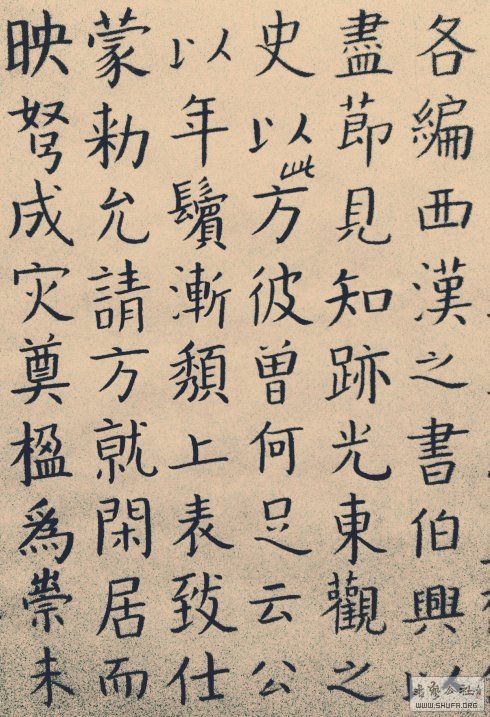 各編西漢之書伯興以
盡節見知跡光東觀之
史以此方彼曾何足云公
以年鬢漸頽上表致仕
蒙勑允請方就閑居而
映弩成灾奠楹爲崇未
WWW.SHUFA.ORG